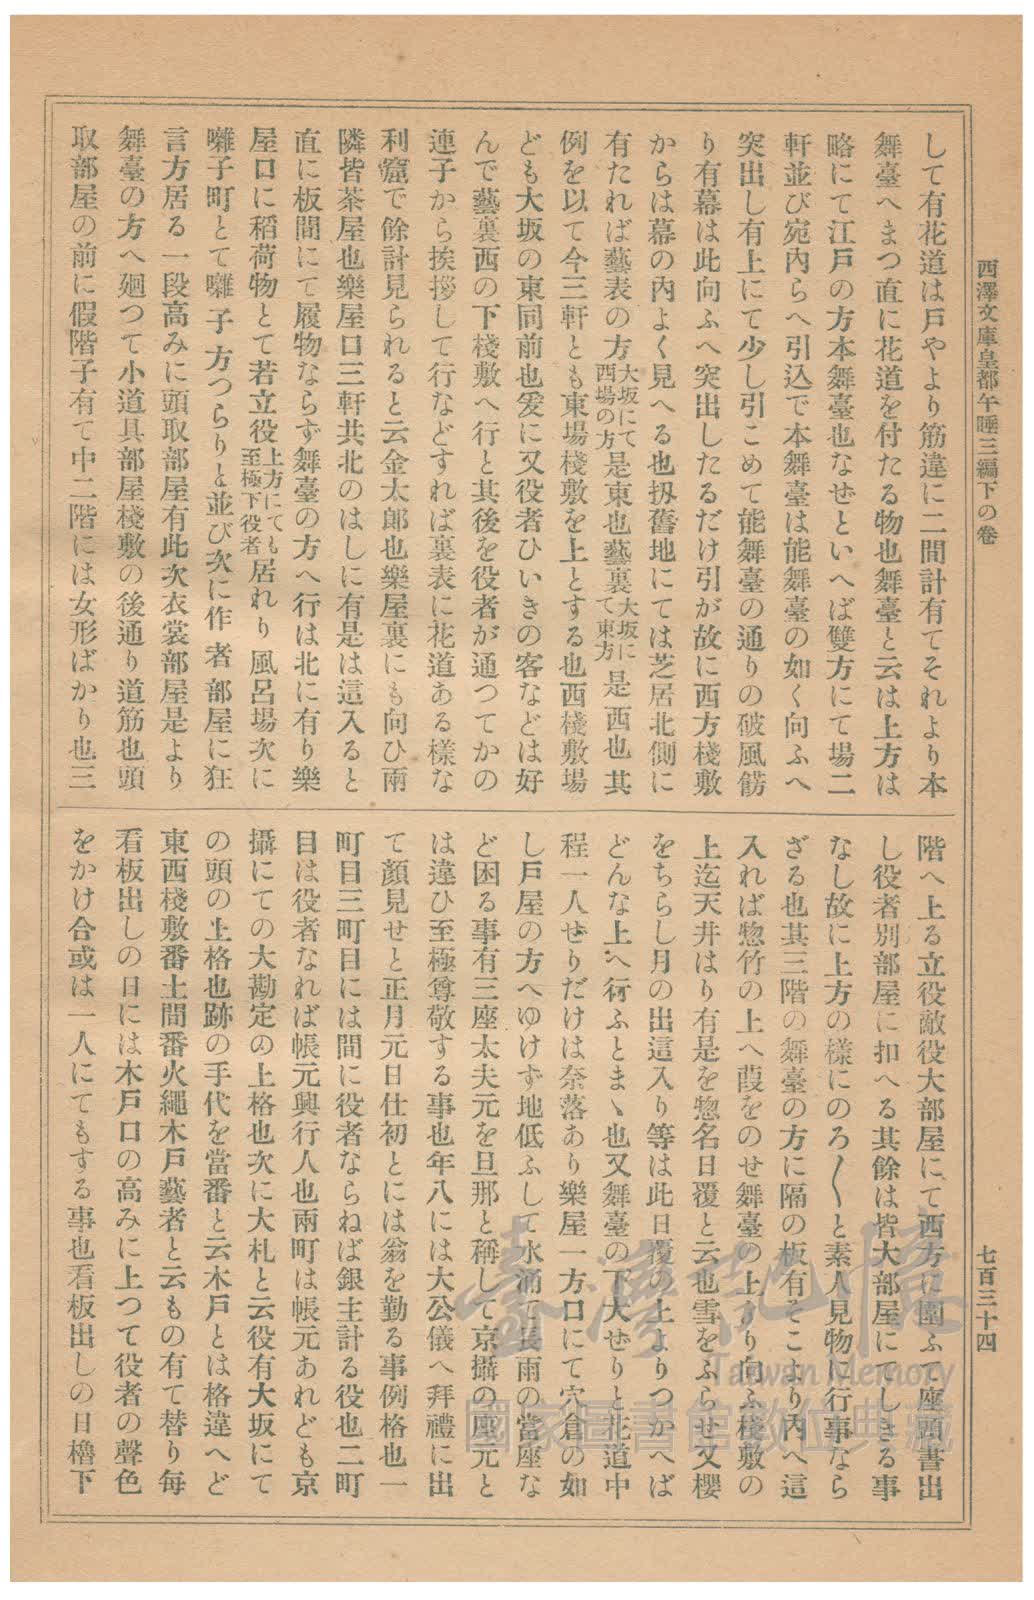 西澤文庫皇都午睡三編下の卷
七百三十四
して有花道は戸やより筋違に二間計有てそれより本
舞臺へまつ直に花道を付たる物也舞臺と云は上方は
略にて江戸の方本舞臺也なぜといへば雙方にて場二
軒並び宛內らへ引込で本舞臺は能舞臺の如く向ふへ
突出し有上にて少し引こめて能舞臺の通りの破風餝
り有幕は此向ふへ突出したるだけ引が故に西方棧敷
からは幕の內よく見へる也扨舊地にては芝居北側に
有たれば藝表の方大坂にて西塲の方是東也藝裏大坂にて東方是西也其
例を以て今三軒とも東場棧敷を上とする也西棧敷場
ども大坂の東同前也爰に又役者ひいきの客などは好
んで藝裏西の下棧敷へ行と其後を役者が通つてかの
連子から挨拶して行などすれば裏表に花道ある樣な
利窟で餘計見られると云金太郎也樂屋裏にも向ひ兩
隣皆茶屋也樂屋口三軒共北のはしに有是は這入ると
直に板間にて履物ならず舞臺の方へ行は北に有り樂
屋口に稻荷物とて若立役上方にても至極下役者居れり風呂場次に
囃子町とて囃子方つらりと並び次に作者部屋に狂
言方居る一段高みに頭取部屋有此次衣裳部屋是より
舞臺の方へ廻つて小道具部屋棧敷の後通り道筋也頭
取部屋の前に假階子有て中二階には女形ばかり也三
階へ上る立役敵役大部屋にて西方に圍ふて座頭書出
し役者別部屋に扣へる其餘は皆大部屋にてしきる事
なし故に上方の樣にのろ〱と素人見物に行事なら
ざる也其三階の舞臺の方に隔の板有そこより內へ這
入れば惣竹の上へ葭をのせ舞臺の上より向ふ棧敷の
上迄天井はり有是を惣名日覆と云也雪をふらせ又櫻
をちらし月の出這入り等は此日覆の上よりつかへば
どんな上へ行ふとまゝ也又舞臺の下大せりと花道中
程一人せりだけは奈落あり樂屋一方口にて穴倉の如
し戸屋の方へゆけず地低ふして水涌て長雨の當座な
ど困る事有三座太夫元を旦那と稱して京攝の座元と
は違ひ至極尊敬する事也年八には大公儀へ拜禮に出
て顏見せと正月元日仕初とには翁を勤る事例格也一
町目三町目には間に役者ならねば銀主計る役也二町
目は役者なれば帳元興行人也兩町は帳元あれども京
攝にての大勘定の上格也次に大札と云役有大坂にて
の頭の上格也跡の手代を當番と云木戸とは格違へど
東西棧敷番土間番火繩木戸藝者と云もの有て替り每
看板出しの日には木戸口の高みに上つて役者の聲色
をかけ合或は一人にてもする事也看板出しの日櫓下
臺灣記憶
Taiwan Memory
國家圖書館數位典藏